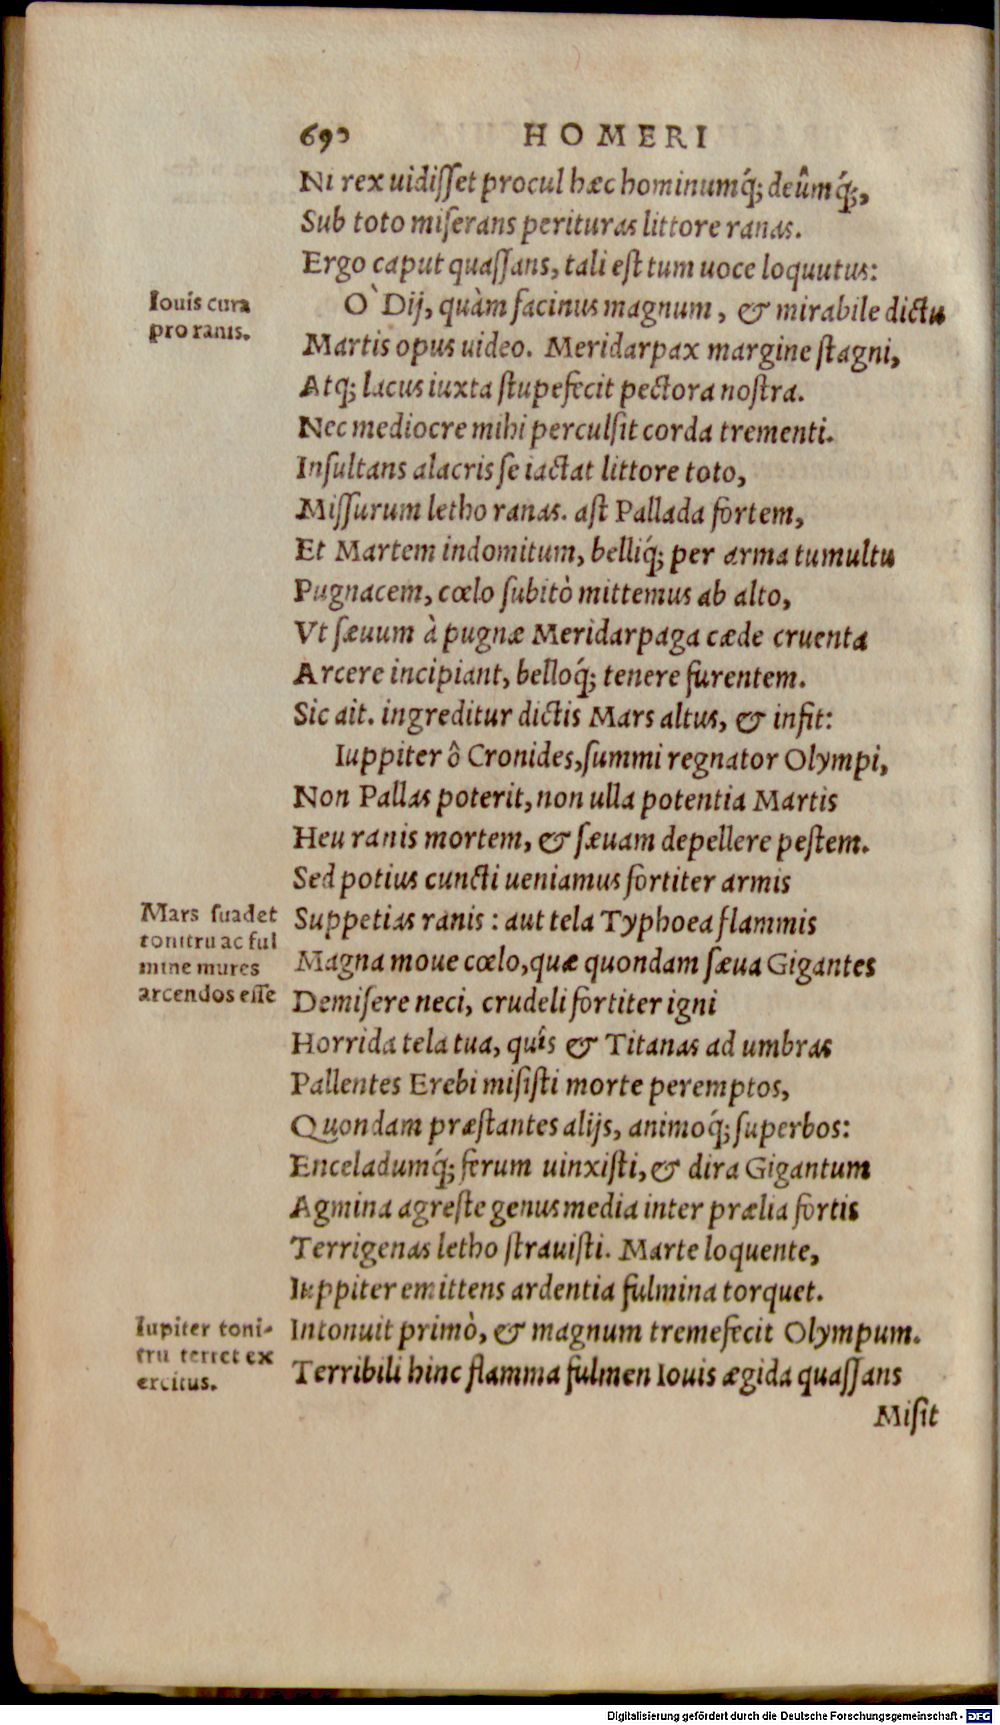 690 HOMERI
Ni rex uidiſſet procul hæc hominumq́; deûmq́;,
Sub toto miſerans perituras littore ranas.
Ergo caput quaſſans, tali eſt tum uoce loquutus:
Iouis cura
pro ranis.
O` Dij, quàm facinus magnum, & mirabile dictu
Martis opus uideo. Meridarpax margine ſtagni,
Atq; lacus iuxta ſtupefecit pectora noſtra.
Nec mediocre mihi perculſit corda trementi.
Inſultans alacris ſe iactat littore toto,
Miſſurum letho ranas. aſt Pallada fortem,
Et Martem indomitum, belliq́; per arma tumultu
Pugnacem, cœlo ſubitò mittemus ab alto,
Vt ſæuum à pugnæ Meridarpaga cæde cruenta
Arcere incipiant, belloq́; tenere furentem.
Sic ait. ingreditur dictis Mars altus, & infit:
Iuppiter ô Cronides, ſummi regnator Olympi,
Non Pallas poterit, non ulla potentia Martis
Heu ranis mortem, & ſæuam depellere peſtem.
Sed potius cuncti ueniamus fortiter armis
Mars ſuadet
tonitru ac ful
mine mures
arcendos eſſe
Suppetias ranis: aut tela Typhoea flammis
Magna moue cœlo, quæ quondam ſæua Gigantes
Demiſere neci, crudeli fortiter igni
Horrida tela tua, quîs & Titanas ad umbras
Pallentes Erebi miſiſti morte peremptos,
Quondam præſtantes alijs, animoq́; ſuperbos:
Enceladumq́; ferum uinxiſti, & dira Gigantum
Agmina agreſte genus media inter prælia fortis
Terrigenas letho ſtrauiſti. Marte loquente,
Iuppiter emittens ardentia fulmina torquet.
Iupiter toni-
tru terret ex
ercitus.
Intonuit primò, & magnum tremefecit Olympum.
Terribili hinc flamma fulmen Iouis ægida quaſſans
Miſit
Digitalisierung gefördert durch die Deutsche Forschungsgemeinschaft - DFG